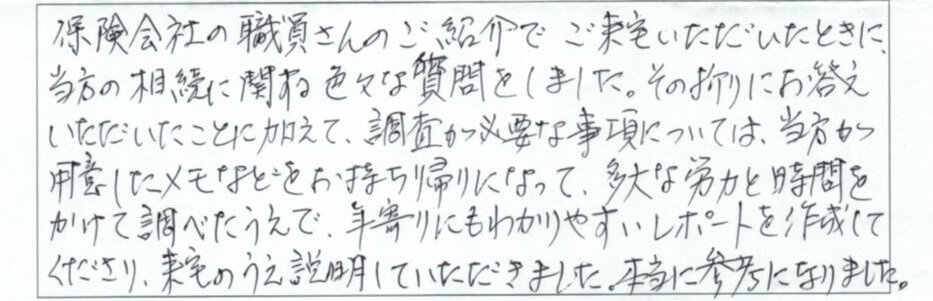 保険会社の職員さんのご紹介でご来宅いただいたときに、
当方の相続に関わる色々な質問をしました。その折りにお答え
いただいたことに加えて、調査が必要な事項については、当方が
用意したメモなどをお持ち帰りになって、多大な労力と時間を
かけて調べたうえで、年寄りにもわかりやすいレポートを作成して
くださり、来宅のうえ説明していただきました。本当に参考になりました。